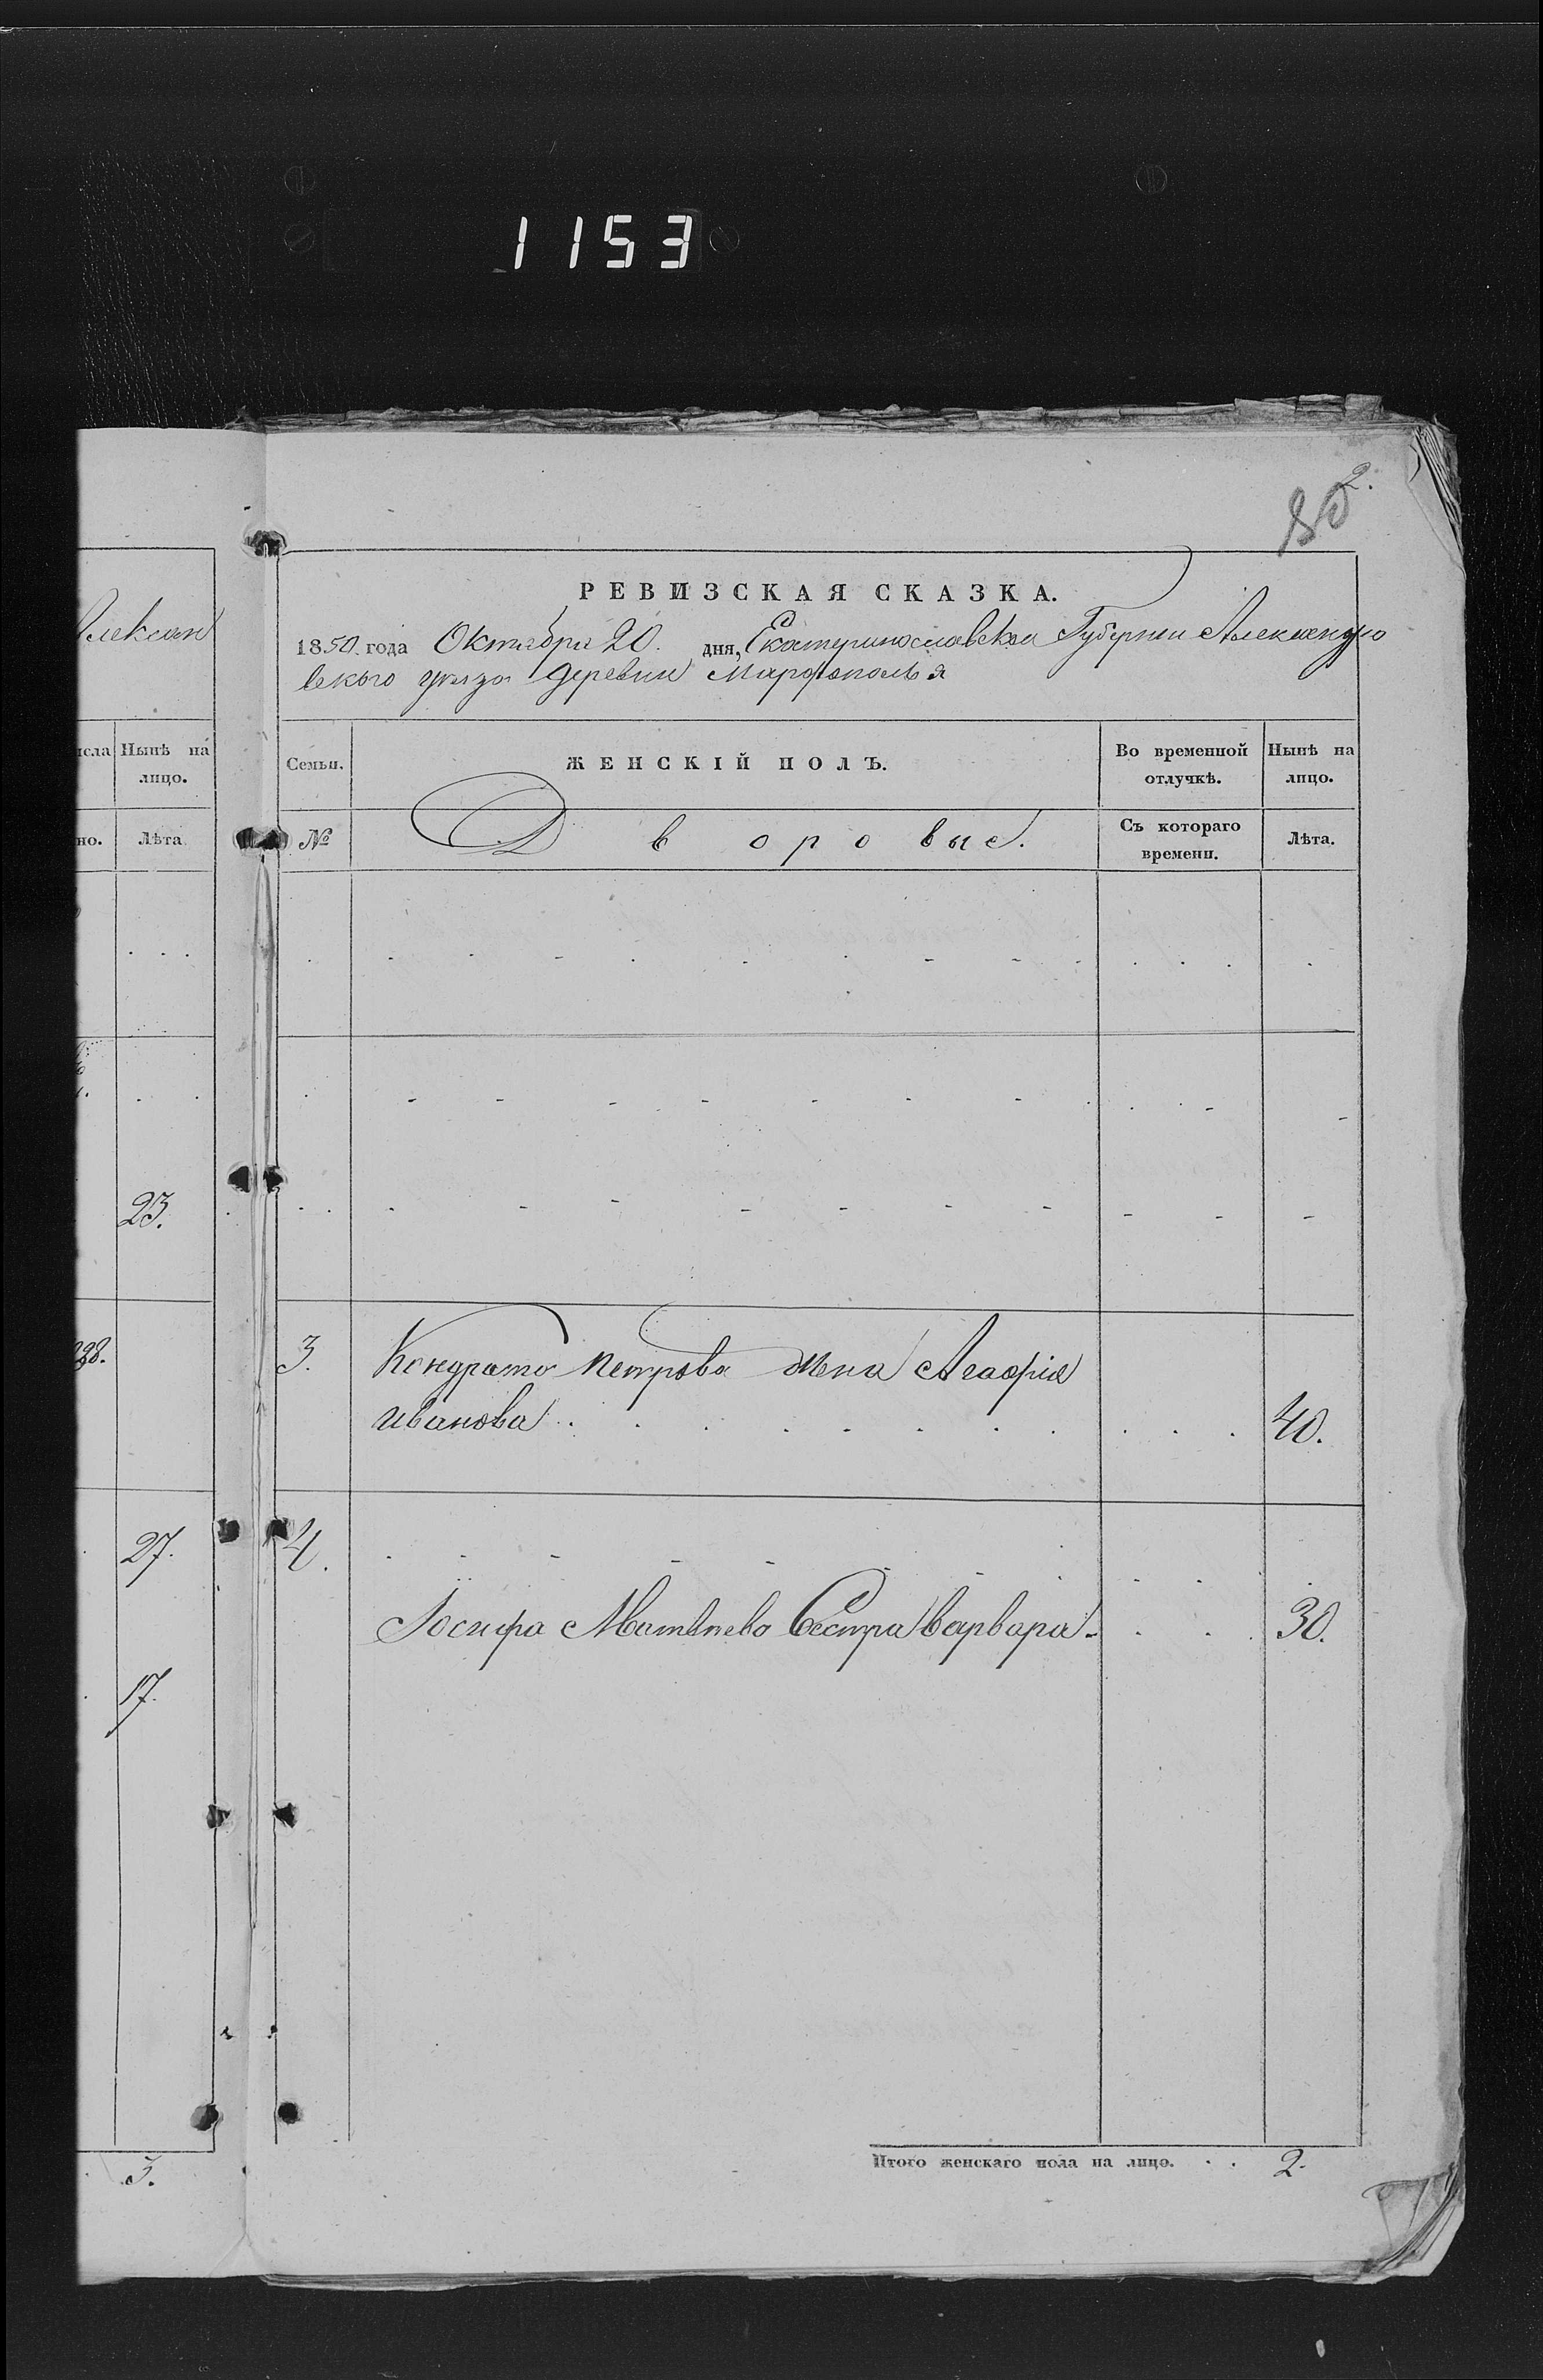 1153
2.
80
Алексан
РЕВИЗСКАЯ СКАЗКА.
1850 года Октября 20. дня, Екатеринославской Губернии Александро
вского уезда деревни Марфополья
исла Нынѣ на лицо.
но. Лѣта
Семьи. ЖЕНСКІЙ ПОЛЪ. Во временной отлучкѣ. Нынѣ на лицо.
№ Дворовые. Съ котораго времени. Лѣта.
23.
3. Кондрата Петрова жена Агафія
Иванова 40.
27. 4.
Іосифа Матвѣева Сестра варвара 30.
17.
3.
Итого женскаго пола на лицо. 2.